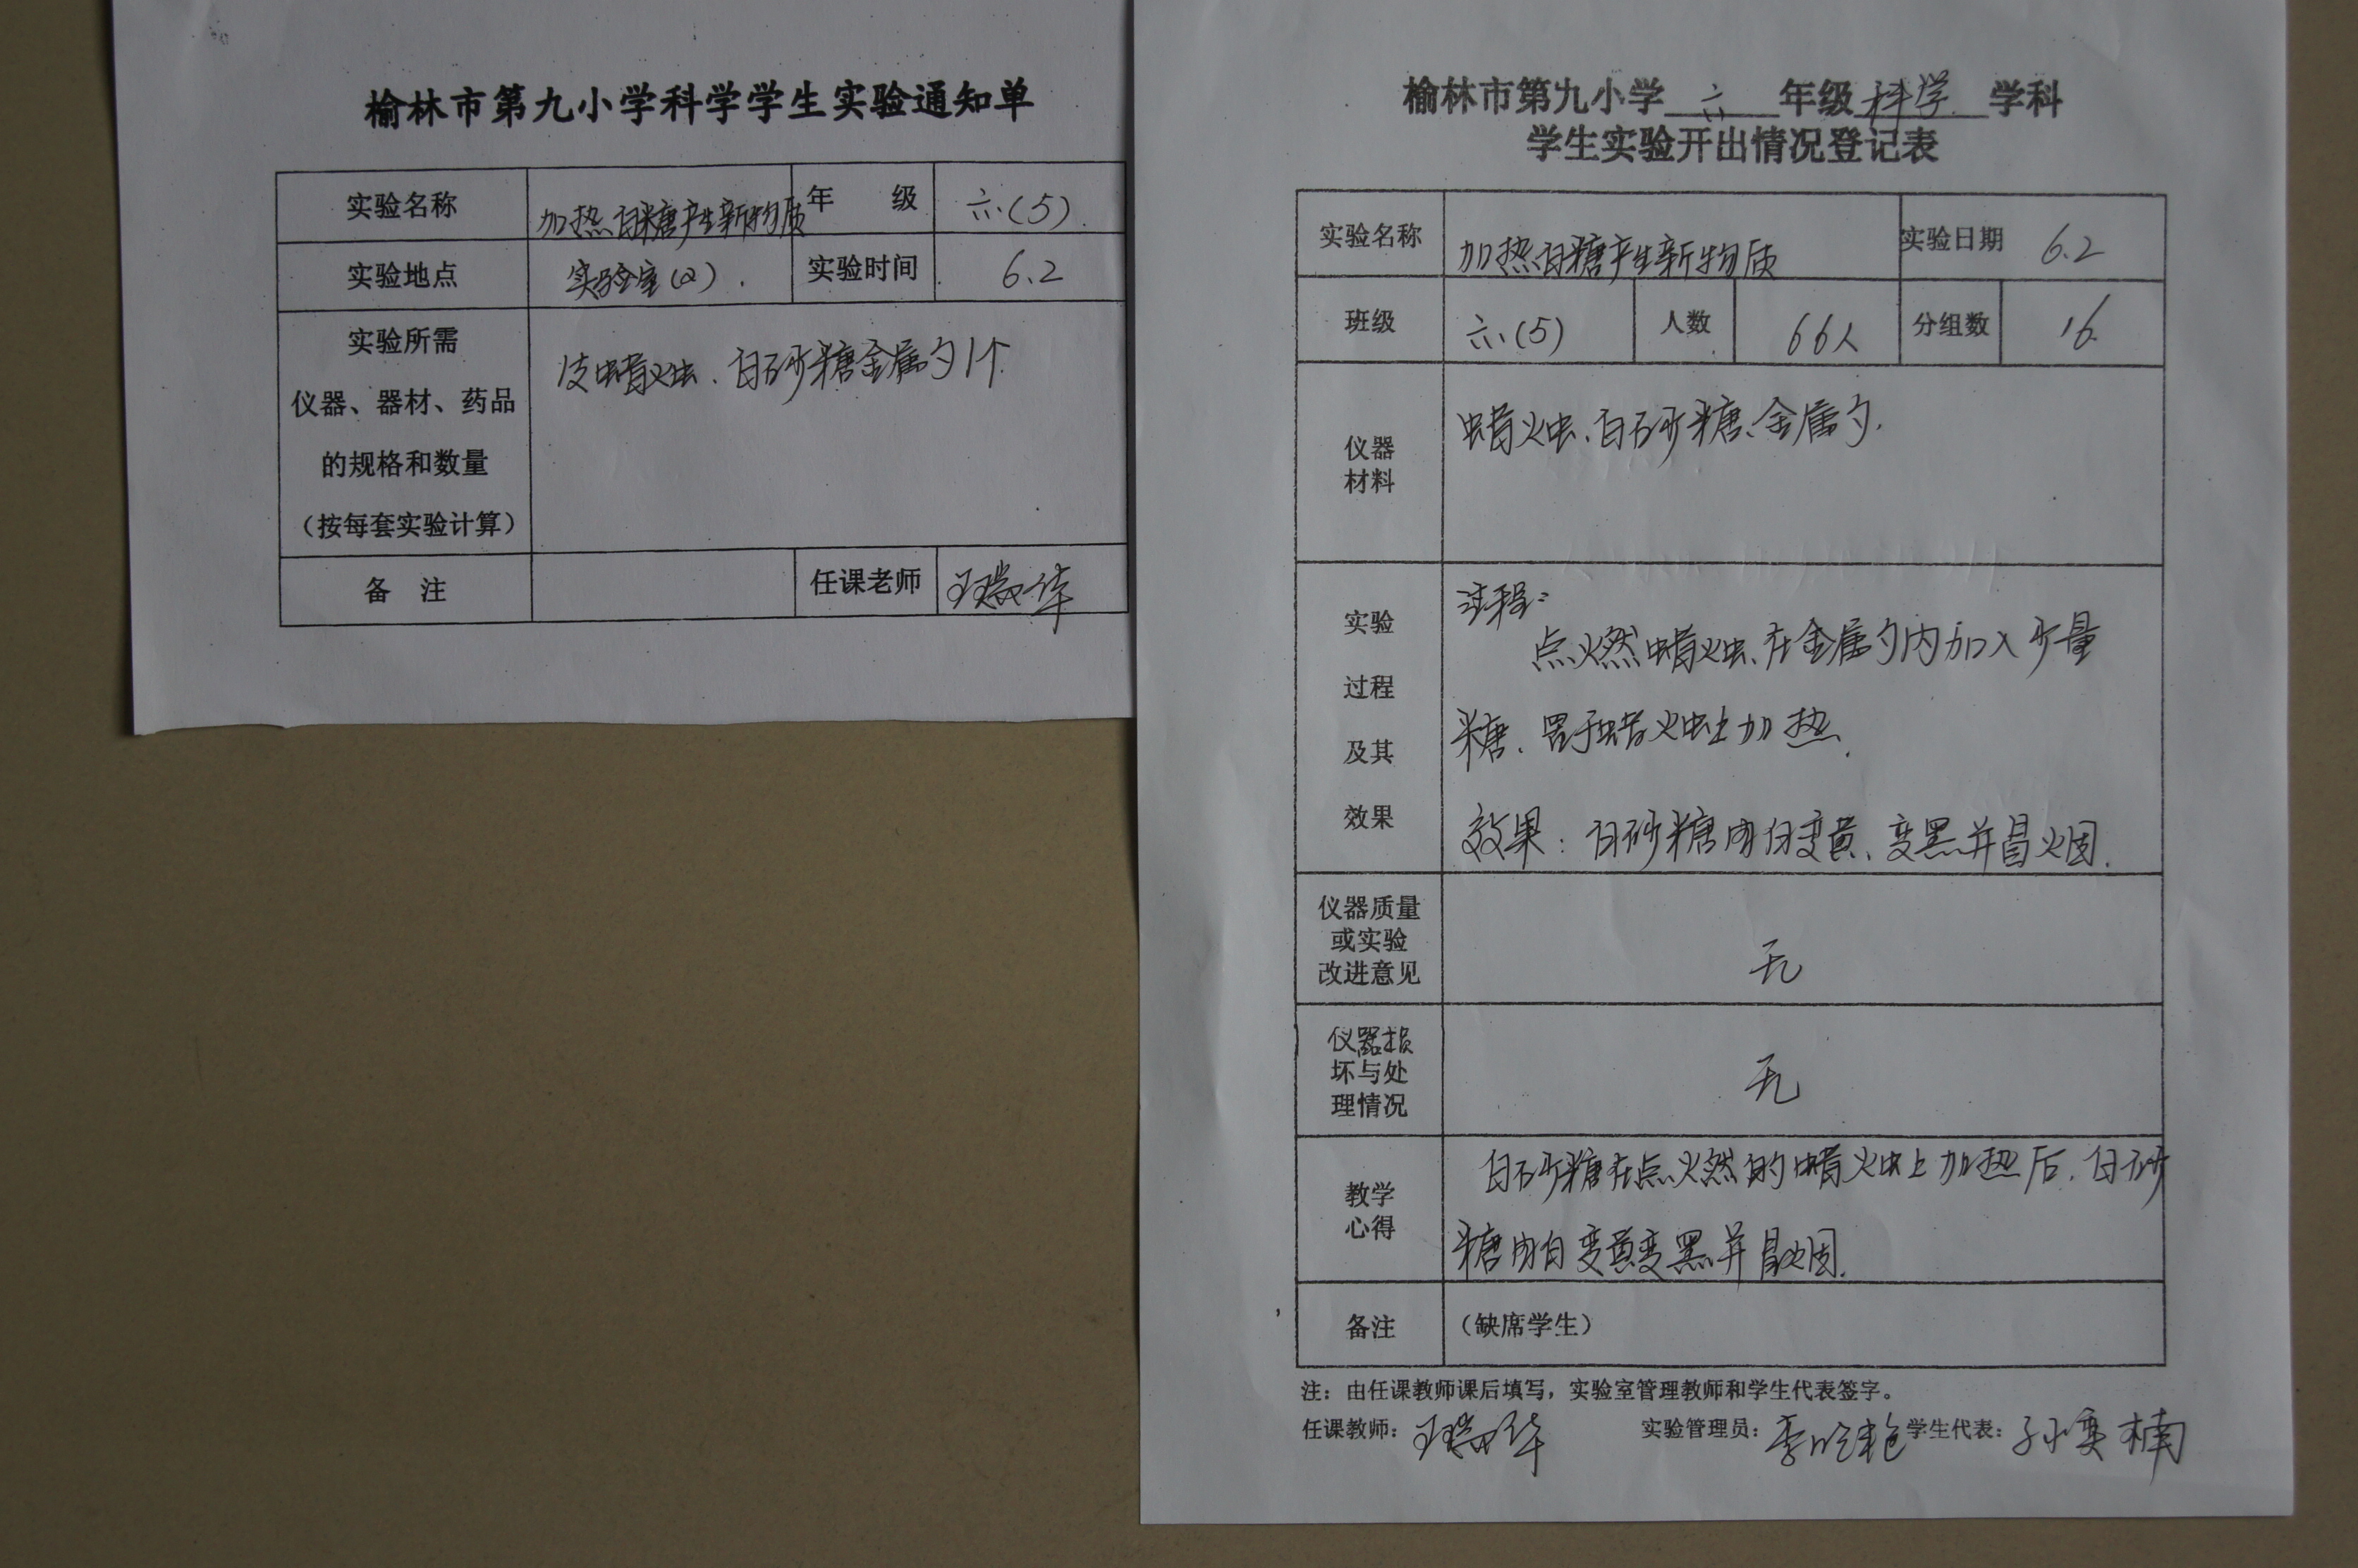 榆林市第九小学科学学生实验通知单
实验名称 加热白糖产生新物质 年 级 六(5)
实验地点 实验室(2). 实验时间 6.2
实验所需
仪器、器材、药品
的规格和数量
（按每套实验计算）
1支蜡烛、白砂糖金属勺1个
备 注 任课老师 王瑞华
榆林市第九小学 六 年级 科学 学科
学生实验开出情况登记表
实验名称 加热白糖产生新物质 实验日期 6.2
班级 六(5) 人数 66人 分组数 16
仪器
材料
蜡烛、白砂糖、金属勺.
实验
过程
及其
效果
过程:
点燃蜡烛、在金属勺内加入少量
糖、置于蜡烛上加热.
效果：白砂糖由白变黄、变黑并冒烟.
仪器质量
或实验
改进意见
无
仪器损
坏与处
理情况
无
教学
心得
白砂糖在点燃的蜡烛上加热后,白砂
糖由白变黄变黑并冒烟.
备注 （缺席学生）
注：由任课教师课后填写，实验室管理教师和学生代表签字。
任课教师：王瑞华 实验管理员： 学生代表：孙奕楠